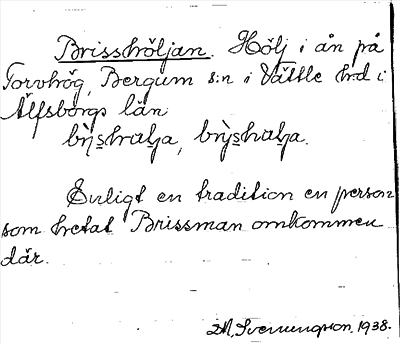 Brisshöljan. Hölj i ån på
Torvhög, Bergum s:n i Vättle hd i
Älfsborgs län
Enligt en tradition en person
som hetat Brissman omkommen
där.
M. Svenungsson. 1938.